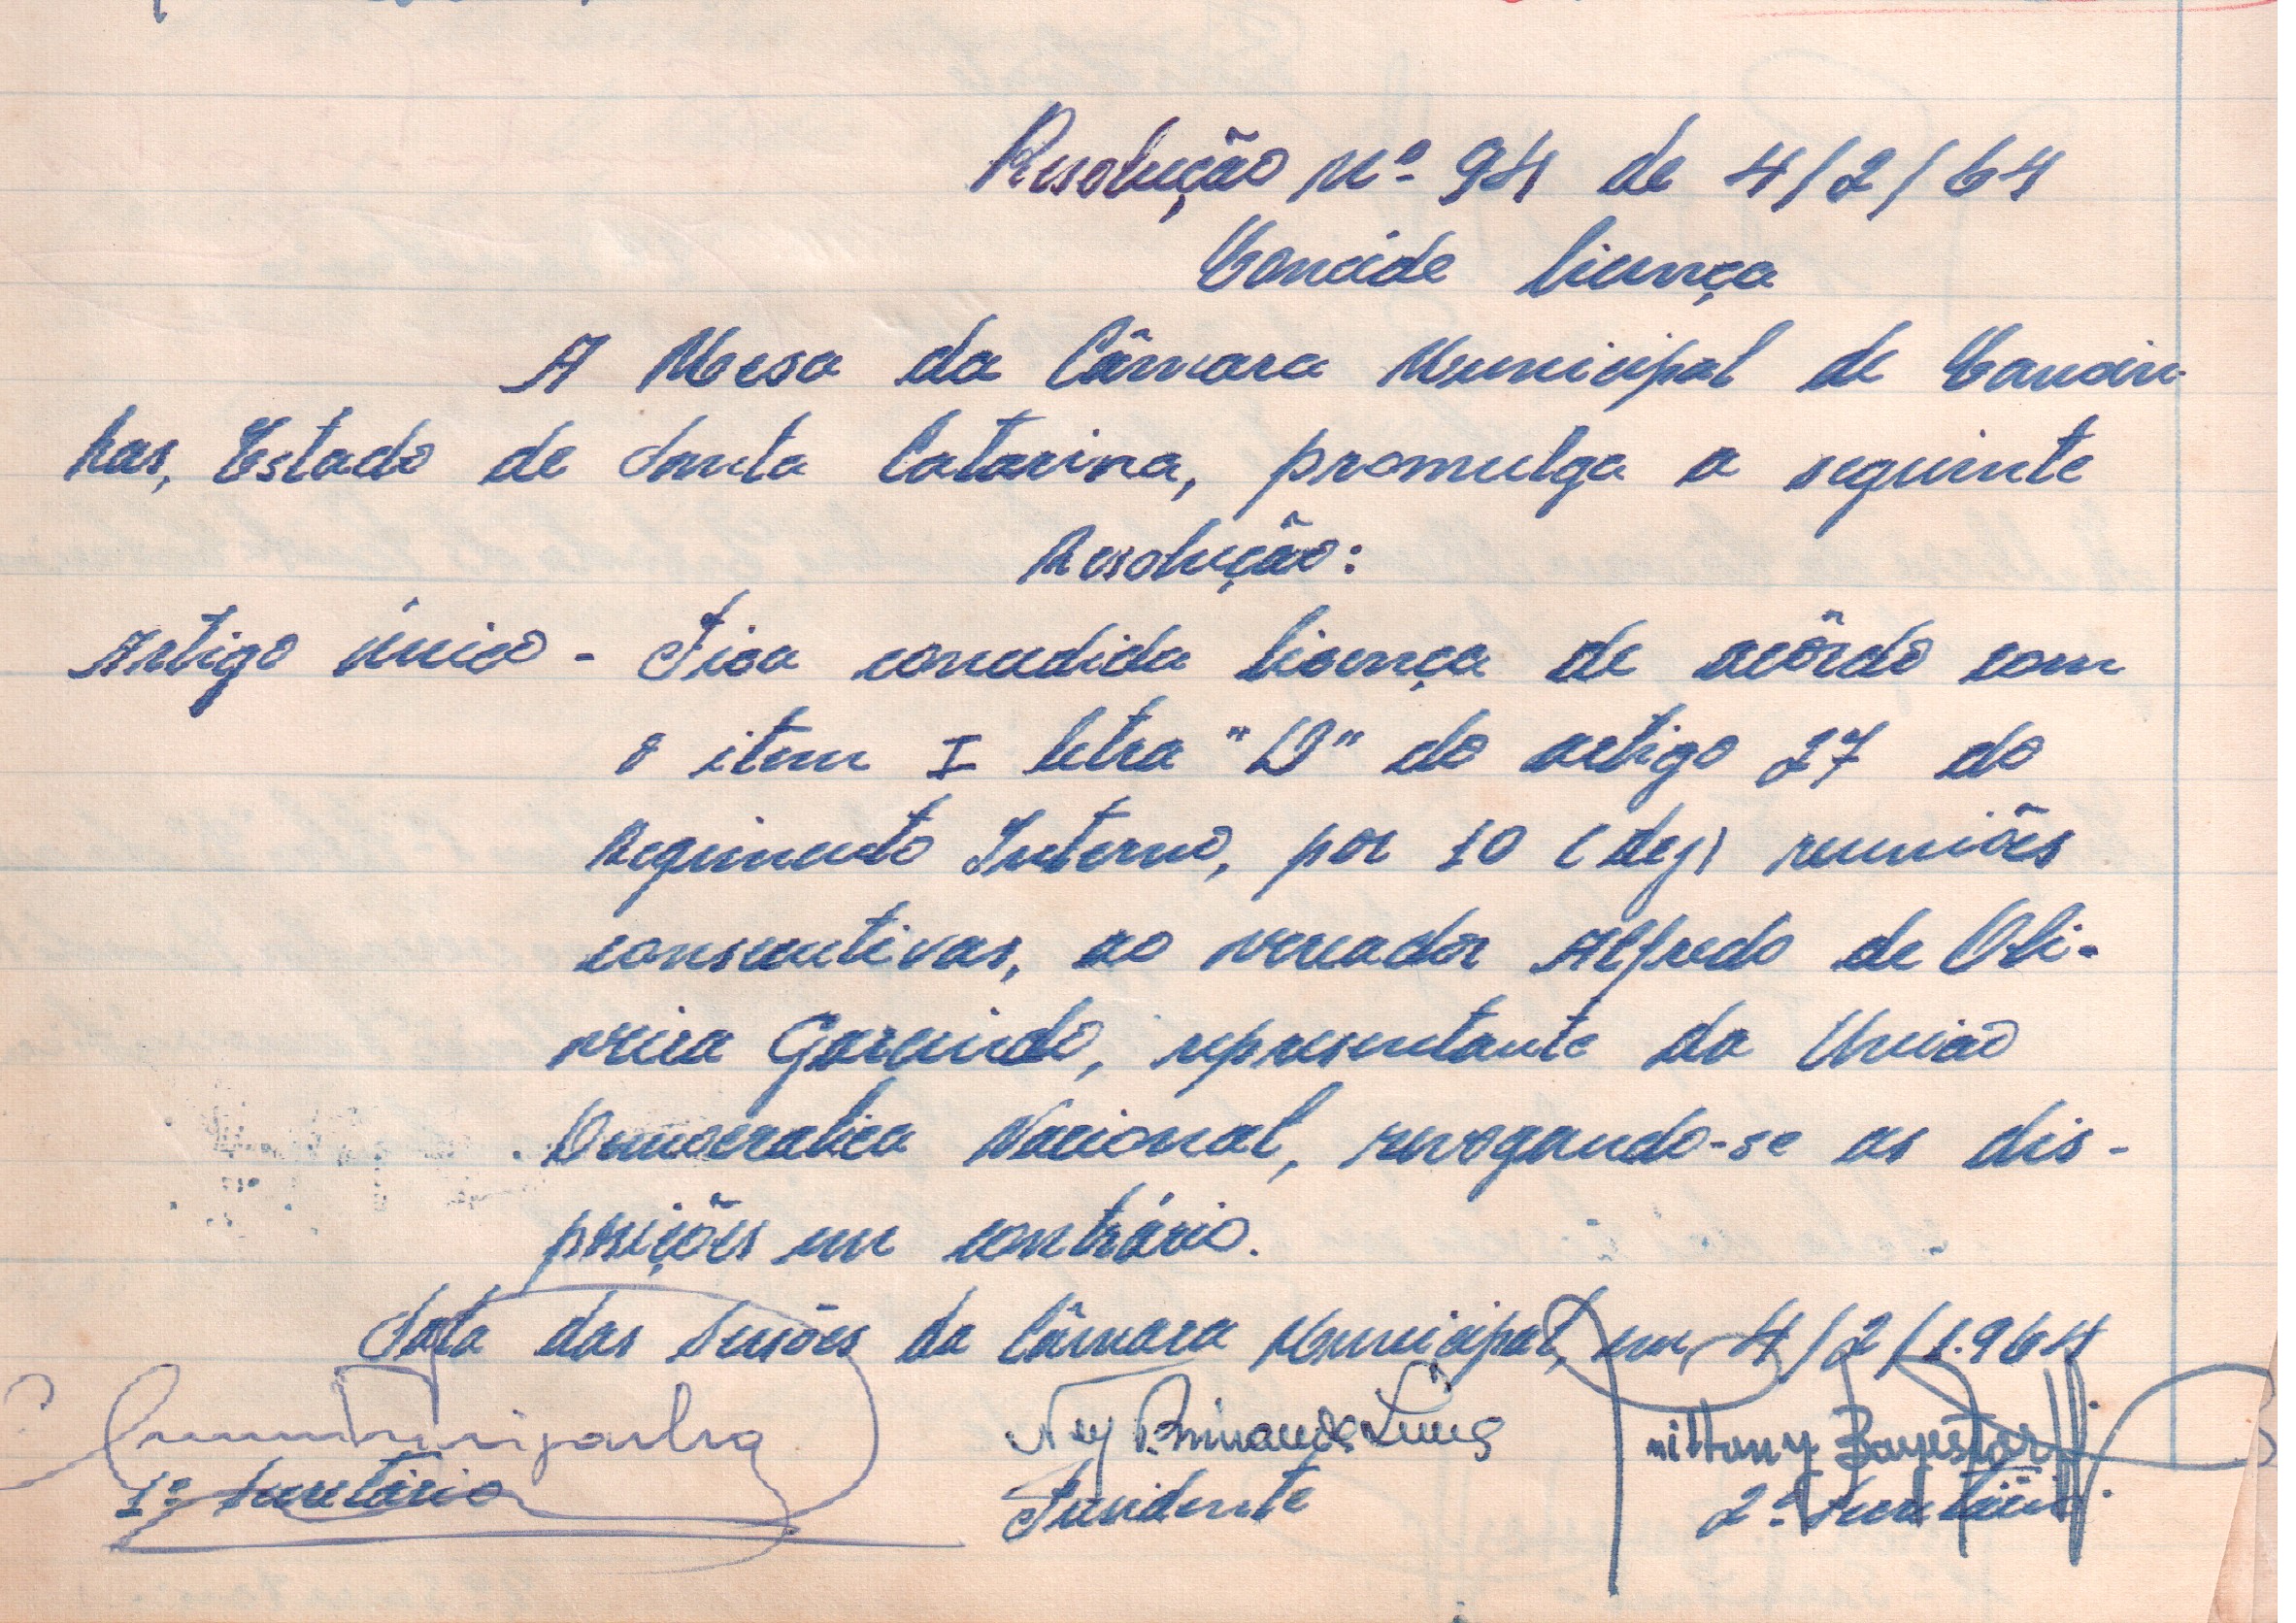 Resolução Nº 94 de 4/2/64
Concede licença
A Mesa da Câmara Municipal de Canoin-
has, Estado de Santa Catarina, promulga a seguinte
Resolução:
Artigo único - Fica concedida licença de acôrdo com
o item I letra "D" do artigo 27 do
Regimento Interno, por 10 (dez) reuniões
consecutivas, ao vereador Alfredo de Oli-
veira Garcindo, representante da União
Democratica Nacional, revogando-se as dis-
posições em contrário.
Sala das Sessões da Câmara Municipal, em, 4/2/1.964
Ney
1º Secretário Presidente 2º Secretário